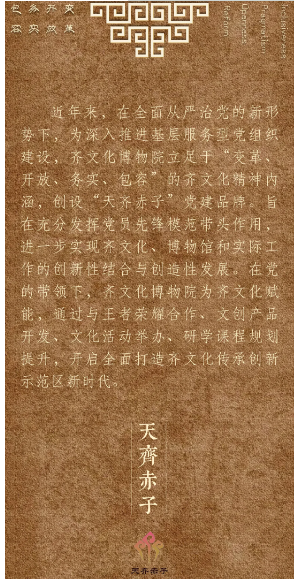 包务开变
容实放革
Reform
Openness
Pragmatism
Inclusiveness
近年来，在全面从严治党的新形
势下，为深入推进基层服务型党组织
建设，齐文化博物院立足于“变革、
开放、务实、包容”的齐文化精神内
涵，创设“天齐赤子”党建品牌。旨
在充分发挥党员先锋模范带头作用，
进一步实现齐文化、博物馆和实际工
作的创新性结合与创造性发展。在党
的带领下，齐文化博物院为齐文化赋
能，通过与王者荣耀合作、文创产品
开发、文化活动举办、研学课程规划
提升，开启全面打造齐文化传承创新
示范区新时代。
天齊赤子
天齐赤子